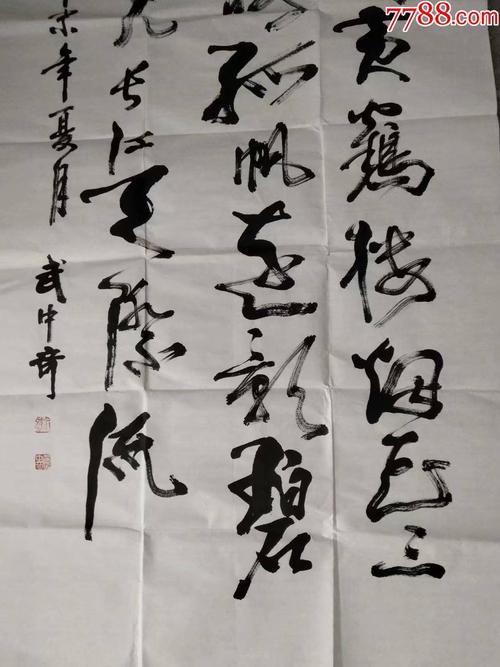 7788.com
黄鶴楼烟花三
孤帆远影碧
长江天际流
未年夏月 武中奇